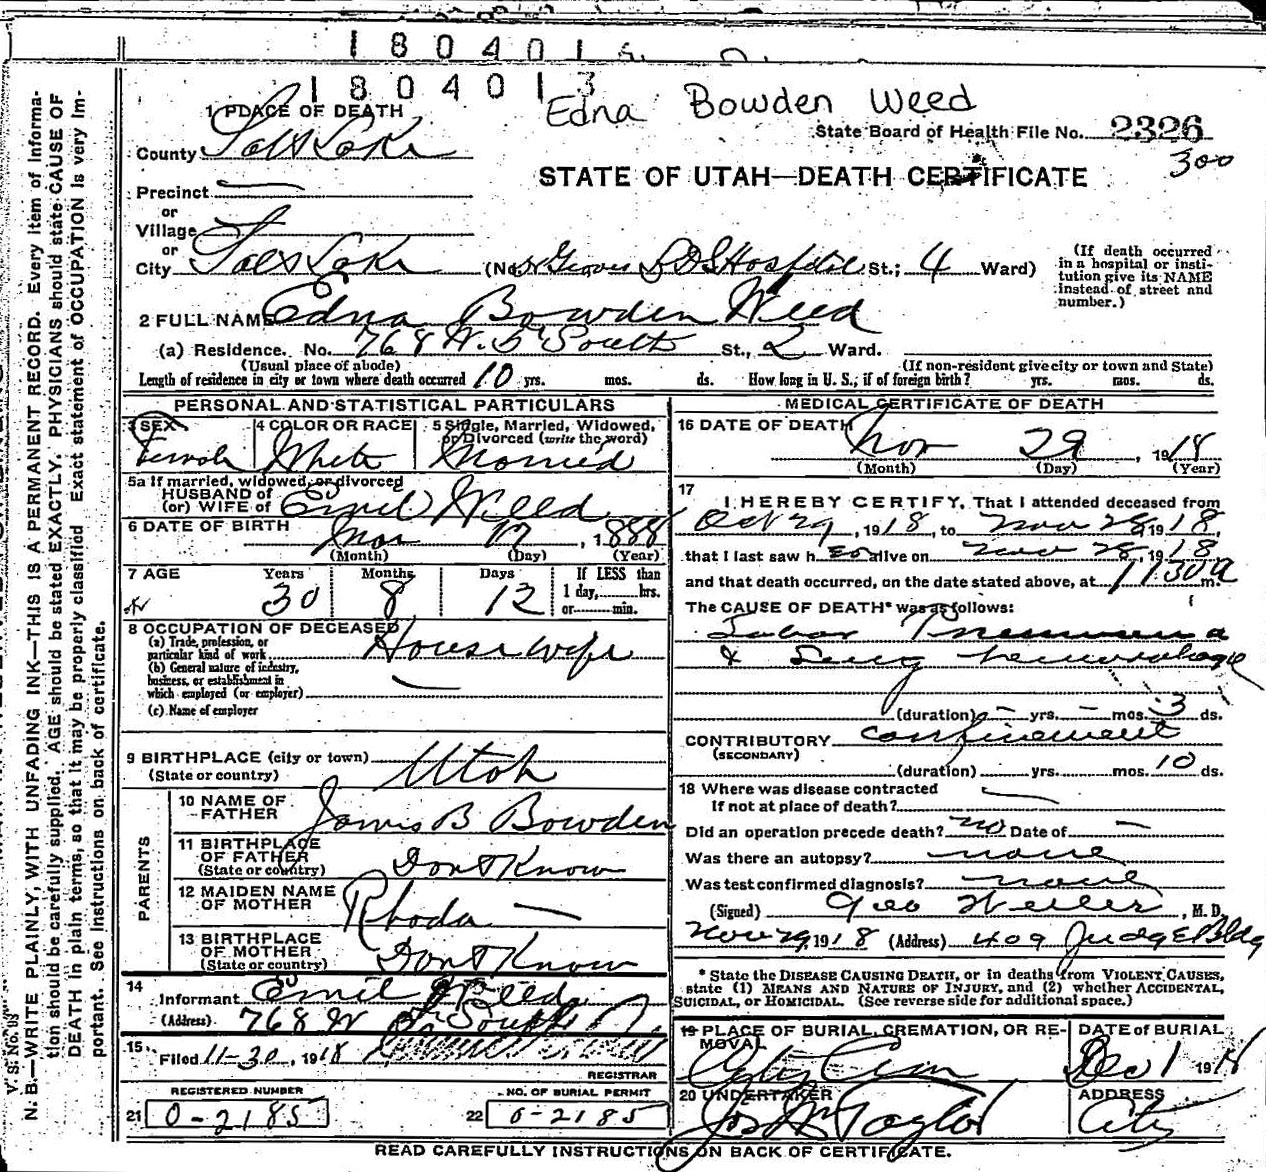 1804015
1804013
Edna Bowden Weed
1 PLACE OF DEATH
State Board of Health File No. 2326
County Salt Lake
300
STATE OF UTAH—DEATH CERTIFICATE
Precinct —
or
Village
or
City Salt Lake (No. LDS Hospital St.; 4 Ward)
(If death occurred in a hospital or institution give its NAME instead of street and number.)
2 FULL NAME Edna Bowden Weed
(a) Residence. No. 768 W. 5 South St., 2 Ward.
(Usual place of abode) (If non-resident give city or town and State)
Length of residence in city or town where death occurred 10 yrs. mos. ds. How long in U. S., if of foreign birth? yrs. mos. ds.
PERSONAL AND STATISTICAL PARTICULARS
3 SEX Female
4 COLOR OR RACE White
5 Single, Married, Widowed, or Divorced (write the word) Married
5a If married, widowed, or divorced
HUSBAND of
(or) WIFE of Emil Weed
6 DATE OF BIRTH Mar 17, 1888
(Month) (Day) (Year)
7 AGE Years 30 Months 8 Days 12
If LESS than 1 day, hrs. or min.
8 OCCUPATION OF DECEASED
(a) Trade, profession, or particular kind of work Housewife
(b) General nature of industry, business, or establishment in which employed (or employer) —
(c) Name of employer
9 BIRTHPLACE (city or town)
(State or country) Utah
PARENTS
10 NAME OF FATHER James B Bowden
11 BIRTHPLACE OF FATHER (State or country) Dont Know
12 MAIDEN NAME OF MOTHER Rhoda —
13 BIRTHPLACE OF MOTHER (State or country) Dont Know
14 Informant Emil Weed
(Address) 768 W 5 South
15 Filed 11-30, 1918
REGISTRAR
REGISTERED NUMBER
21 0-2185
NO. OF BURIAL PERMIT
22 0-2185
MEDICAL CERTIFICATE OF DEATH
16 DATE OF DEATH Nov 29, 1918
(Month) (Day) (Year)
17 I HEREBY CERTIFY, That I attended deceased from
Oct 29, 1918, to Nov 28, 1918,
that I last saw her alive on Nov 28, 1918
and that death occurred, on the date stated above, at 1130a m.
The CAUSE OF DEATH* was as follows:
Lobar Pneumonia
& Lung hemorrhage
(duration) — yrs. — mos. 3 ds.
CONTRIBUTORY confinement
(SECONDARY)
(duration) yrs. mos. 10 ds.
18 Where was disease contracted
If not at place of death? —
Did an operation precede death? no Date of —
Was there an autopsy? none
Was test confirmed diagnosis? none
(Signed) Geo , M. D.
Nov 29, 1918 (Address) 409 Judge Bldg
* State the DISEASE CAUSING DEATH, or in deaths from VIOLENT CAUSES, state (1) MEANS AND NATURE OF INJURY, and (2) whether ACCIDENTAL, SUICIDAL, OR HOMICIDAL. (See reverse side for additional space.)
19 PLACE OF BURIAL, CREMATION, OR REMOVAL City Cem
DATE of BURIAL Dec 1 1918
20 UNDERTAKER Jos Wm Taylor
ADDRESS City
READ CAREFULLY INSTRUCTIONS ON BACK OF CERTIFICATE.
V. S. No.
N. B.—WRITE PLAINLY, WITH UNFADING INK—THIS IS A PERMANENT RECORD. Every item of Information should be carefully supplied. AGE should be stated EXACTLY. PHYSICIANS should state CAUSE OF DEATH in plain terms, so that it may be properly classified. Exact statement of OCCUPATION is very important. See instructions on back of certificate.